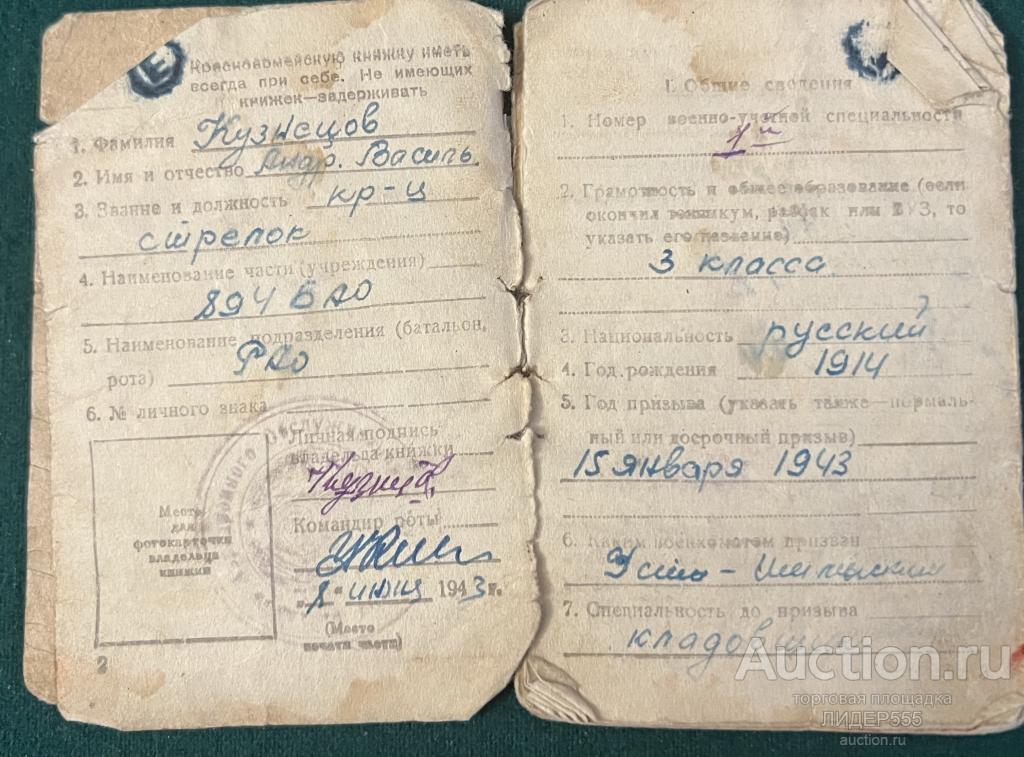 Е
Красноармейскую книжку иметь
всегда при себе. Не имеющих
книжек—задерживать
1. Фамилия Кузнецов
2. Имя и отчество Андр. Василь
3. Звание и должность кр-ц
стрелок
4. Наименование части (учреждения)
894 БАО
5. Наименование подразделения (батальон,
рота) РАО
6. № личного знака
Место
для
фотокарточки
владельца
книжки
Личная подпись
владельца книжки
Командир роты
1943 г.
(Место
печати части)
2
I. Общие сведения
1. Номер военно-учетной специальности
1й
2. Грамотность и общее образование (если
окончил техникум, рабфак или ВУЗ, то
указать его название)
3 класса
3. Национальность русский
4. Год рождения 1914
5. Год призыва (указать также—нормаль-
ный или досрочный призыв)
15 января 1943
6. Каким военкоматом призван
7. Специальность до призыва
Auction.ru
торговая площадка
ЛИДЕР555
auction.ru